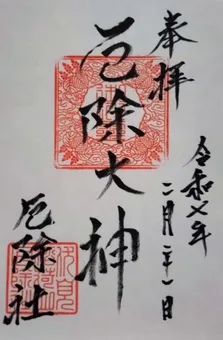 奉拝
令和七年
二月二十一日
厄除大神
厄除社